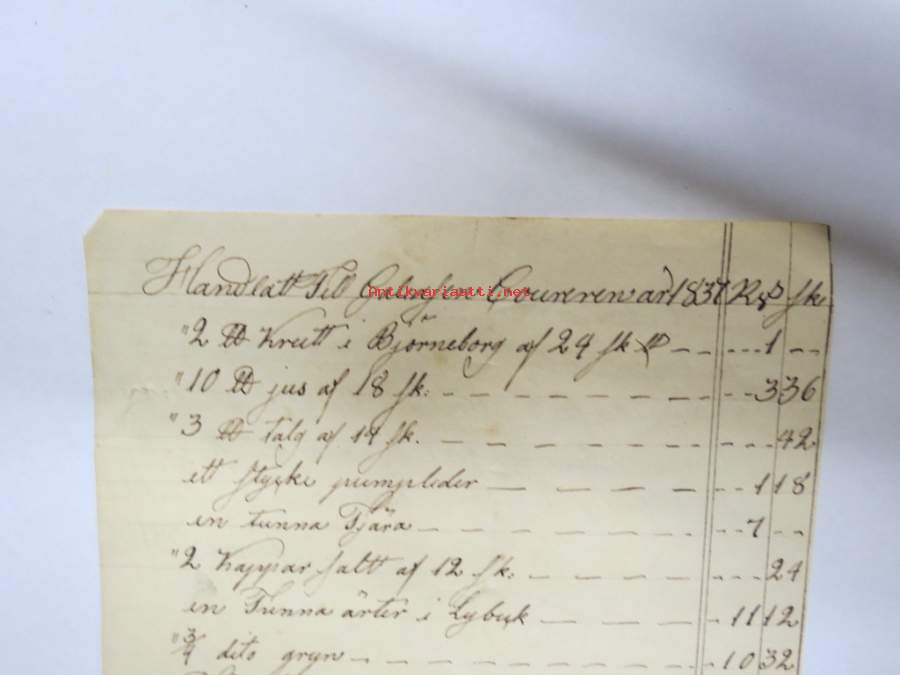 Handlatt Till året 1837 Rd sk
"2 ℔ Krutt i Björneborg af 24 sk ℔ — — — 1 — —
"10 ℔ jus af 18 sk: — — — 3 36
"3 ℔ talg af 14 sk. — — — 42
ett stycke pumpleder — — — 1 18
en tunna Tjära — — — 7 — —
"2 Kappar saltt af 12 sk: — — — 24
en Tunna ärter i Lybek — — — 11 12
"3/4 dito gryn — — — 10 32
Antikvariaatti.net